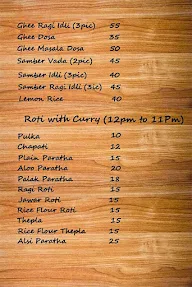 Ghee Ragi Idli (3pic) 55
Ghee Dosa 35
Ghee Masala Dosa 50
Samber Vada (2pic) 45
Samber Idli (3pic) 40
Samber Ragi Idli (3ic) 45
Lemon Rice 40
Roti with Curry (12pm to 11Pm)
Pulka 10
Chapati 12
Plain Paratha 15
Aloo Paratha 20
Palak Paratha 18
Ragi Roti 15
Jawar Roti 15
Rice Flour Roti 15
Thepla 15
Rice Flour Thepla 15
Alsi Paratha 25